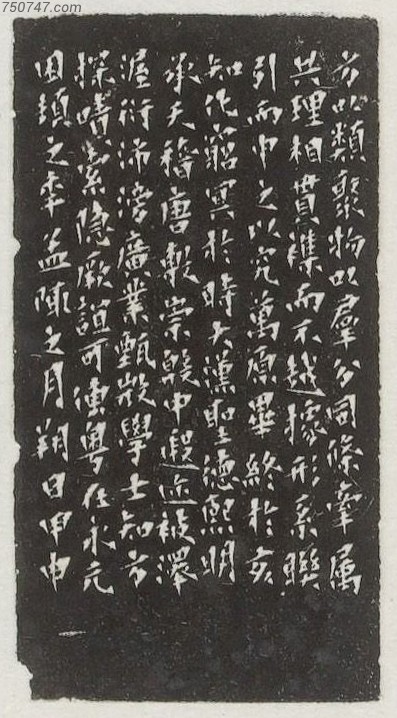 750747.com
方以類聚物以羣分同條牽属
共理相貫襍而不越據形系聯
引而申之以究萬原畢終於亥
知化窮冥於時大漢聖德熙明
承天稽唐敷崇殷中遐迩被澤
渥衍沛滂廣業甄微學士知方
探嘖索隐厥誼可傳粤在永元
困頓之秊孟陬之月朔日甲申